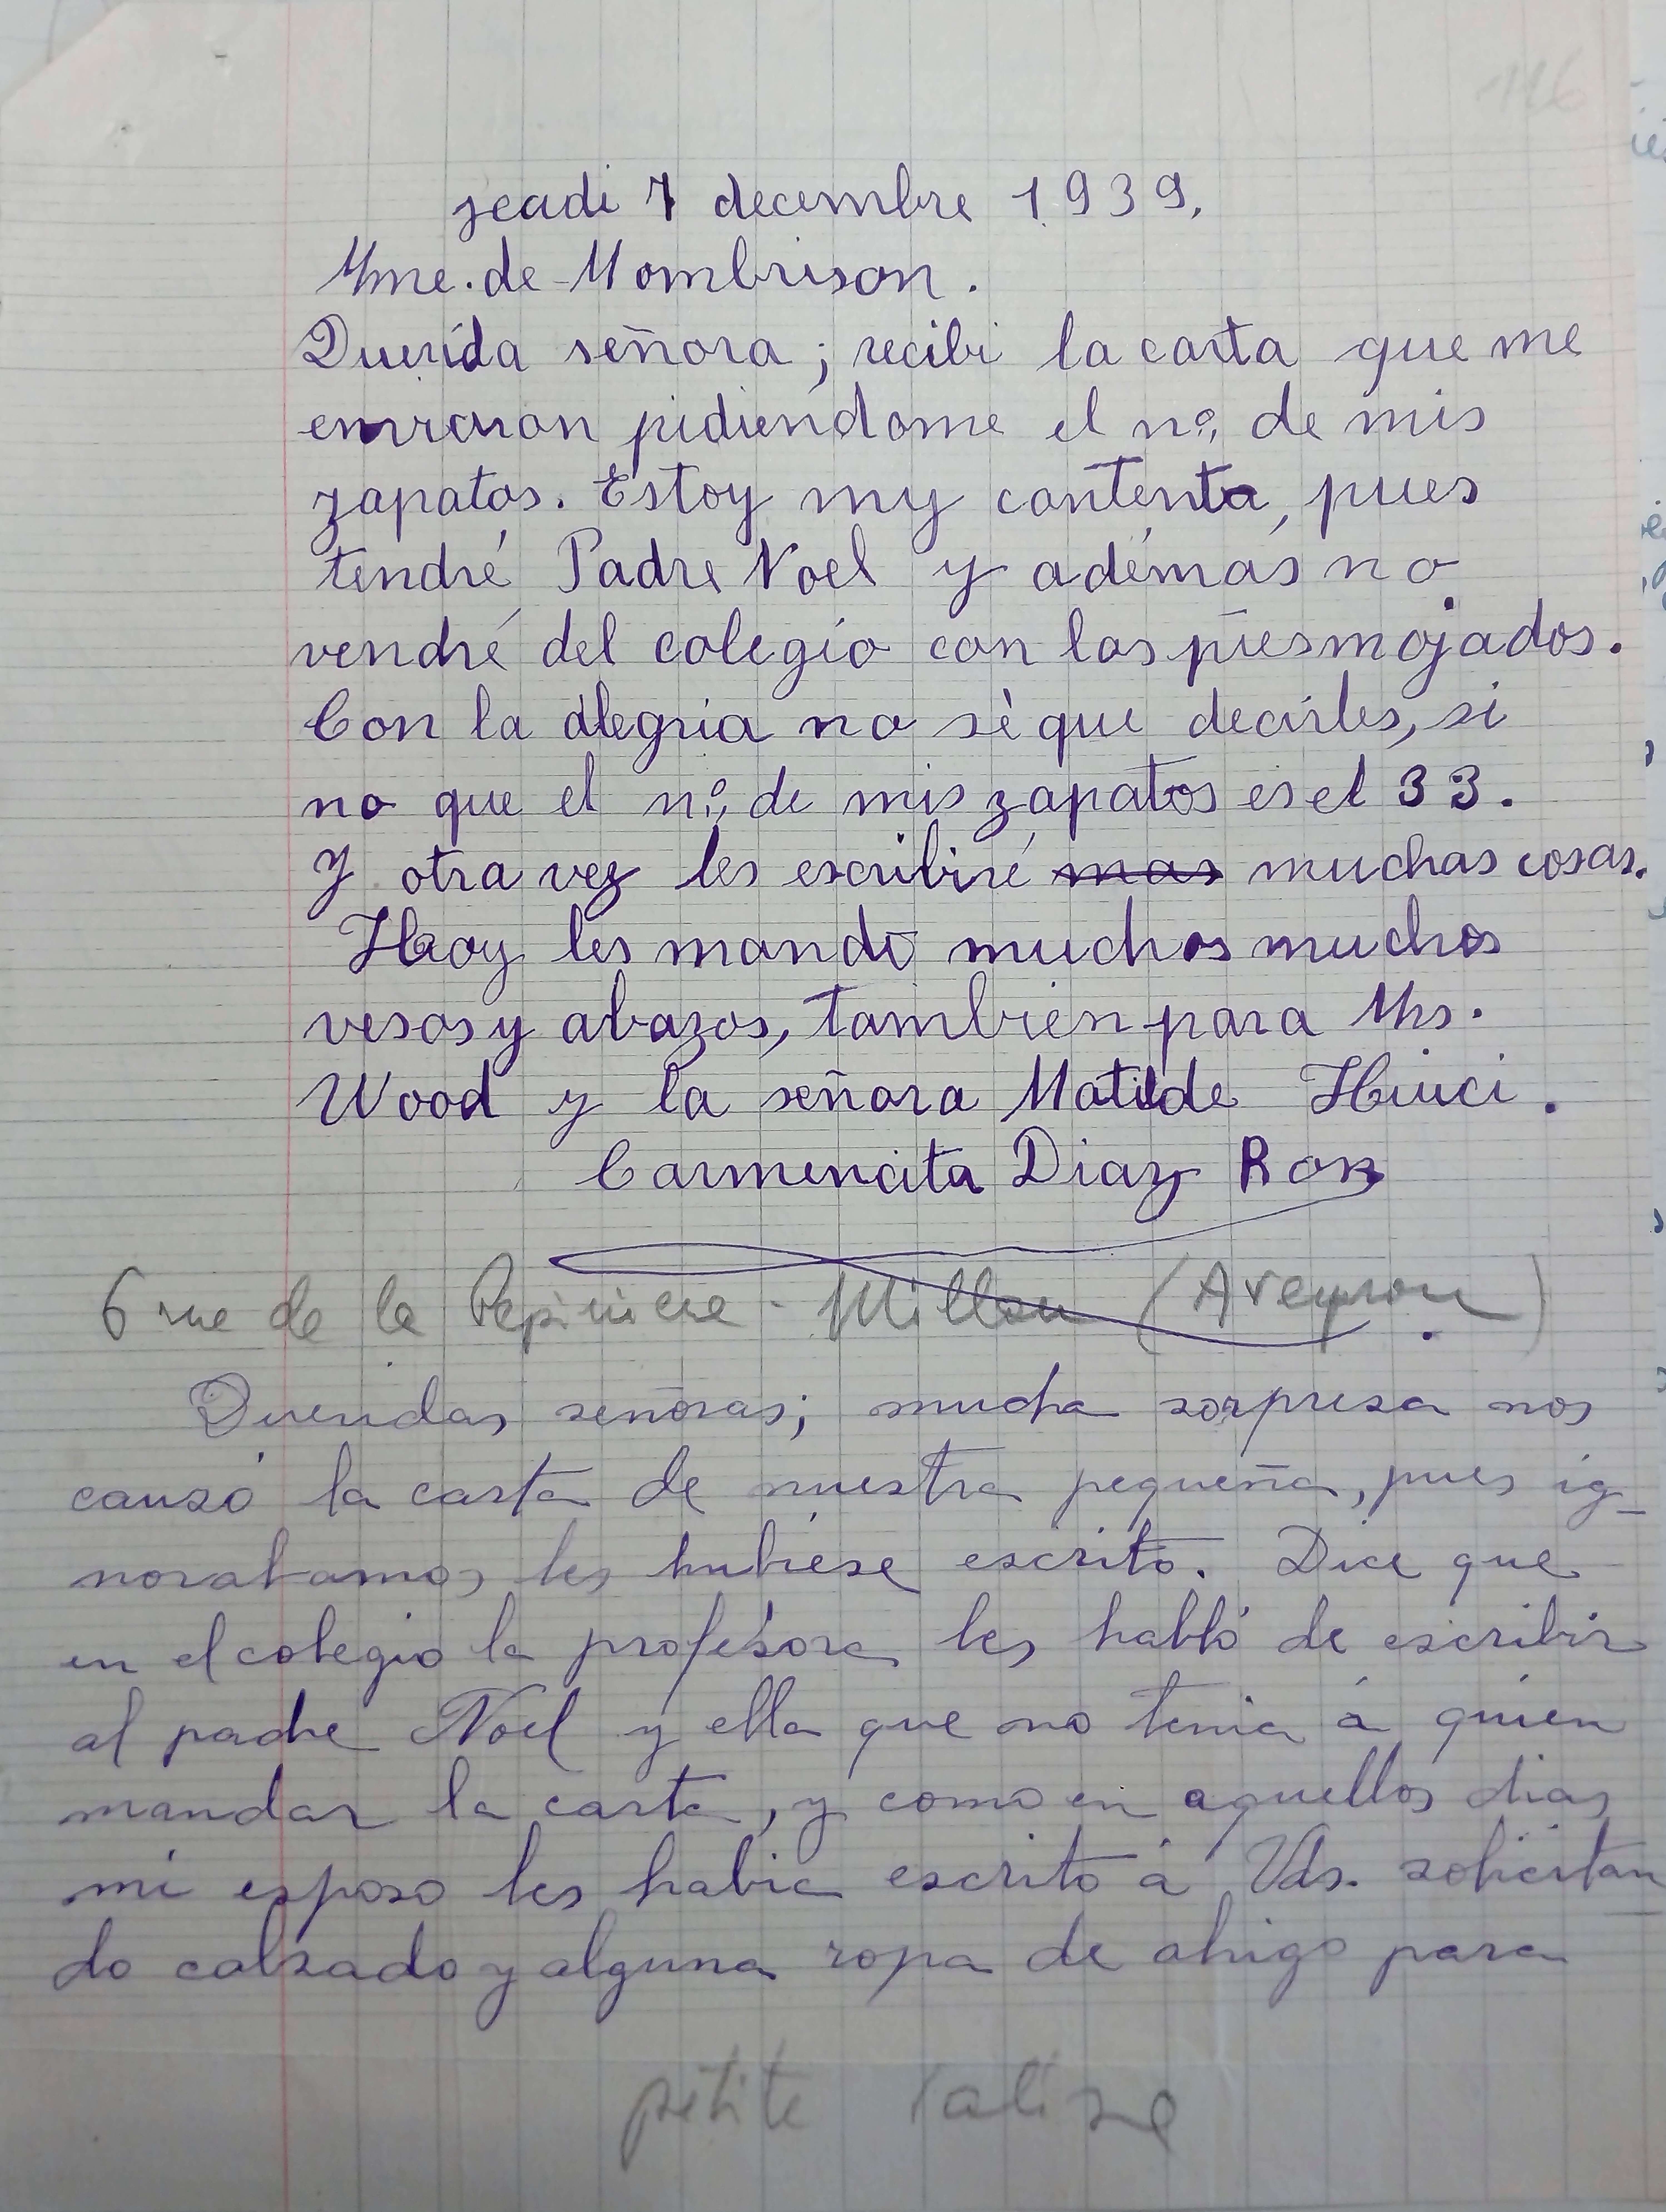 116
jeadi 7 decembre 1939,
Mme. de Mombrison.
Querída señora; recibi la carta que me
enviaron pidiéndome el nº, de mis
zapatos. Estoy my contenta, pues
tendré Padre Noel y además no
vendré del colegio con los pies mojados.
Con la alegria no sè que decirles, si
no que el nº, de mis zapatos es el 33.
Y otra vez les escribiré mas muchas cosas.
Hoy les mando muchos muchos
vesos y abazos, tambien para Mrs.
Wood y la señora Matilde Huici.
Carmencita Diaz Ron
6 rue de la Pepiniere - Millau (Aveyron)
Queridas señoras; mucha sorpresa nos
causó la carta de nuestra pequeña, pues ig-
norabamos les hubiese escrito. Dice que
en el colegio la profesora les habló de escribir
al padre Noel y ella que no tenia á quien
mandar la carta, y como en aquellos dias
mi esposo les habia escrito á Vds. solicitan
do calzado y alguna ropa de abrigo para
petite